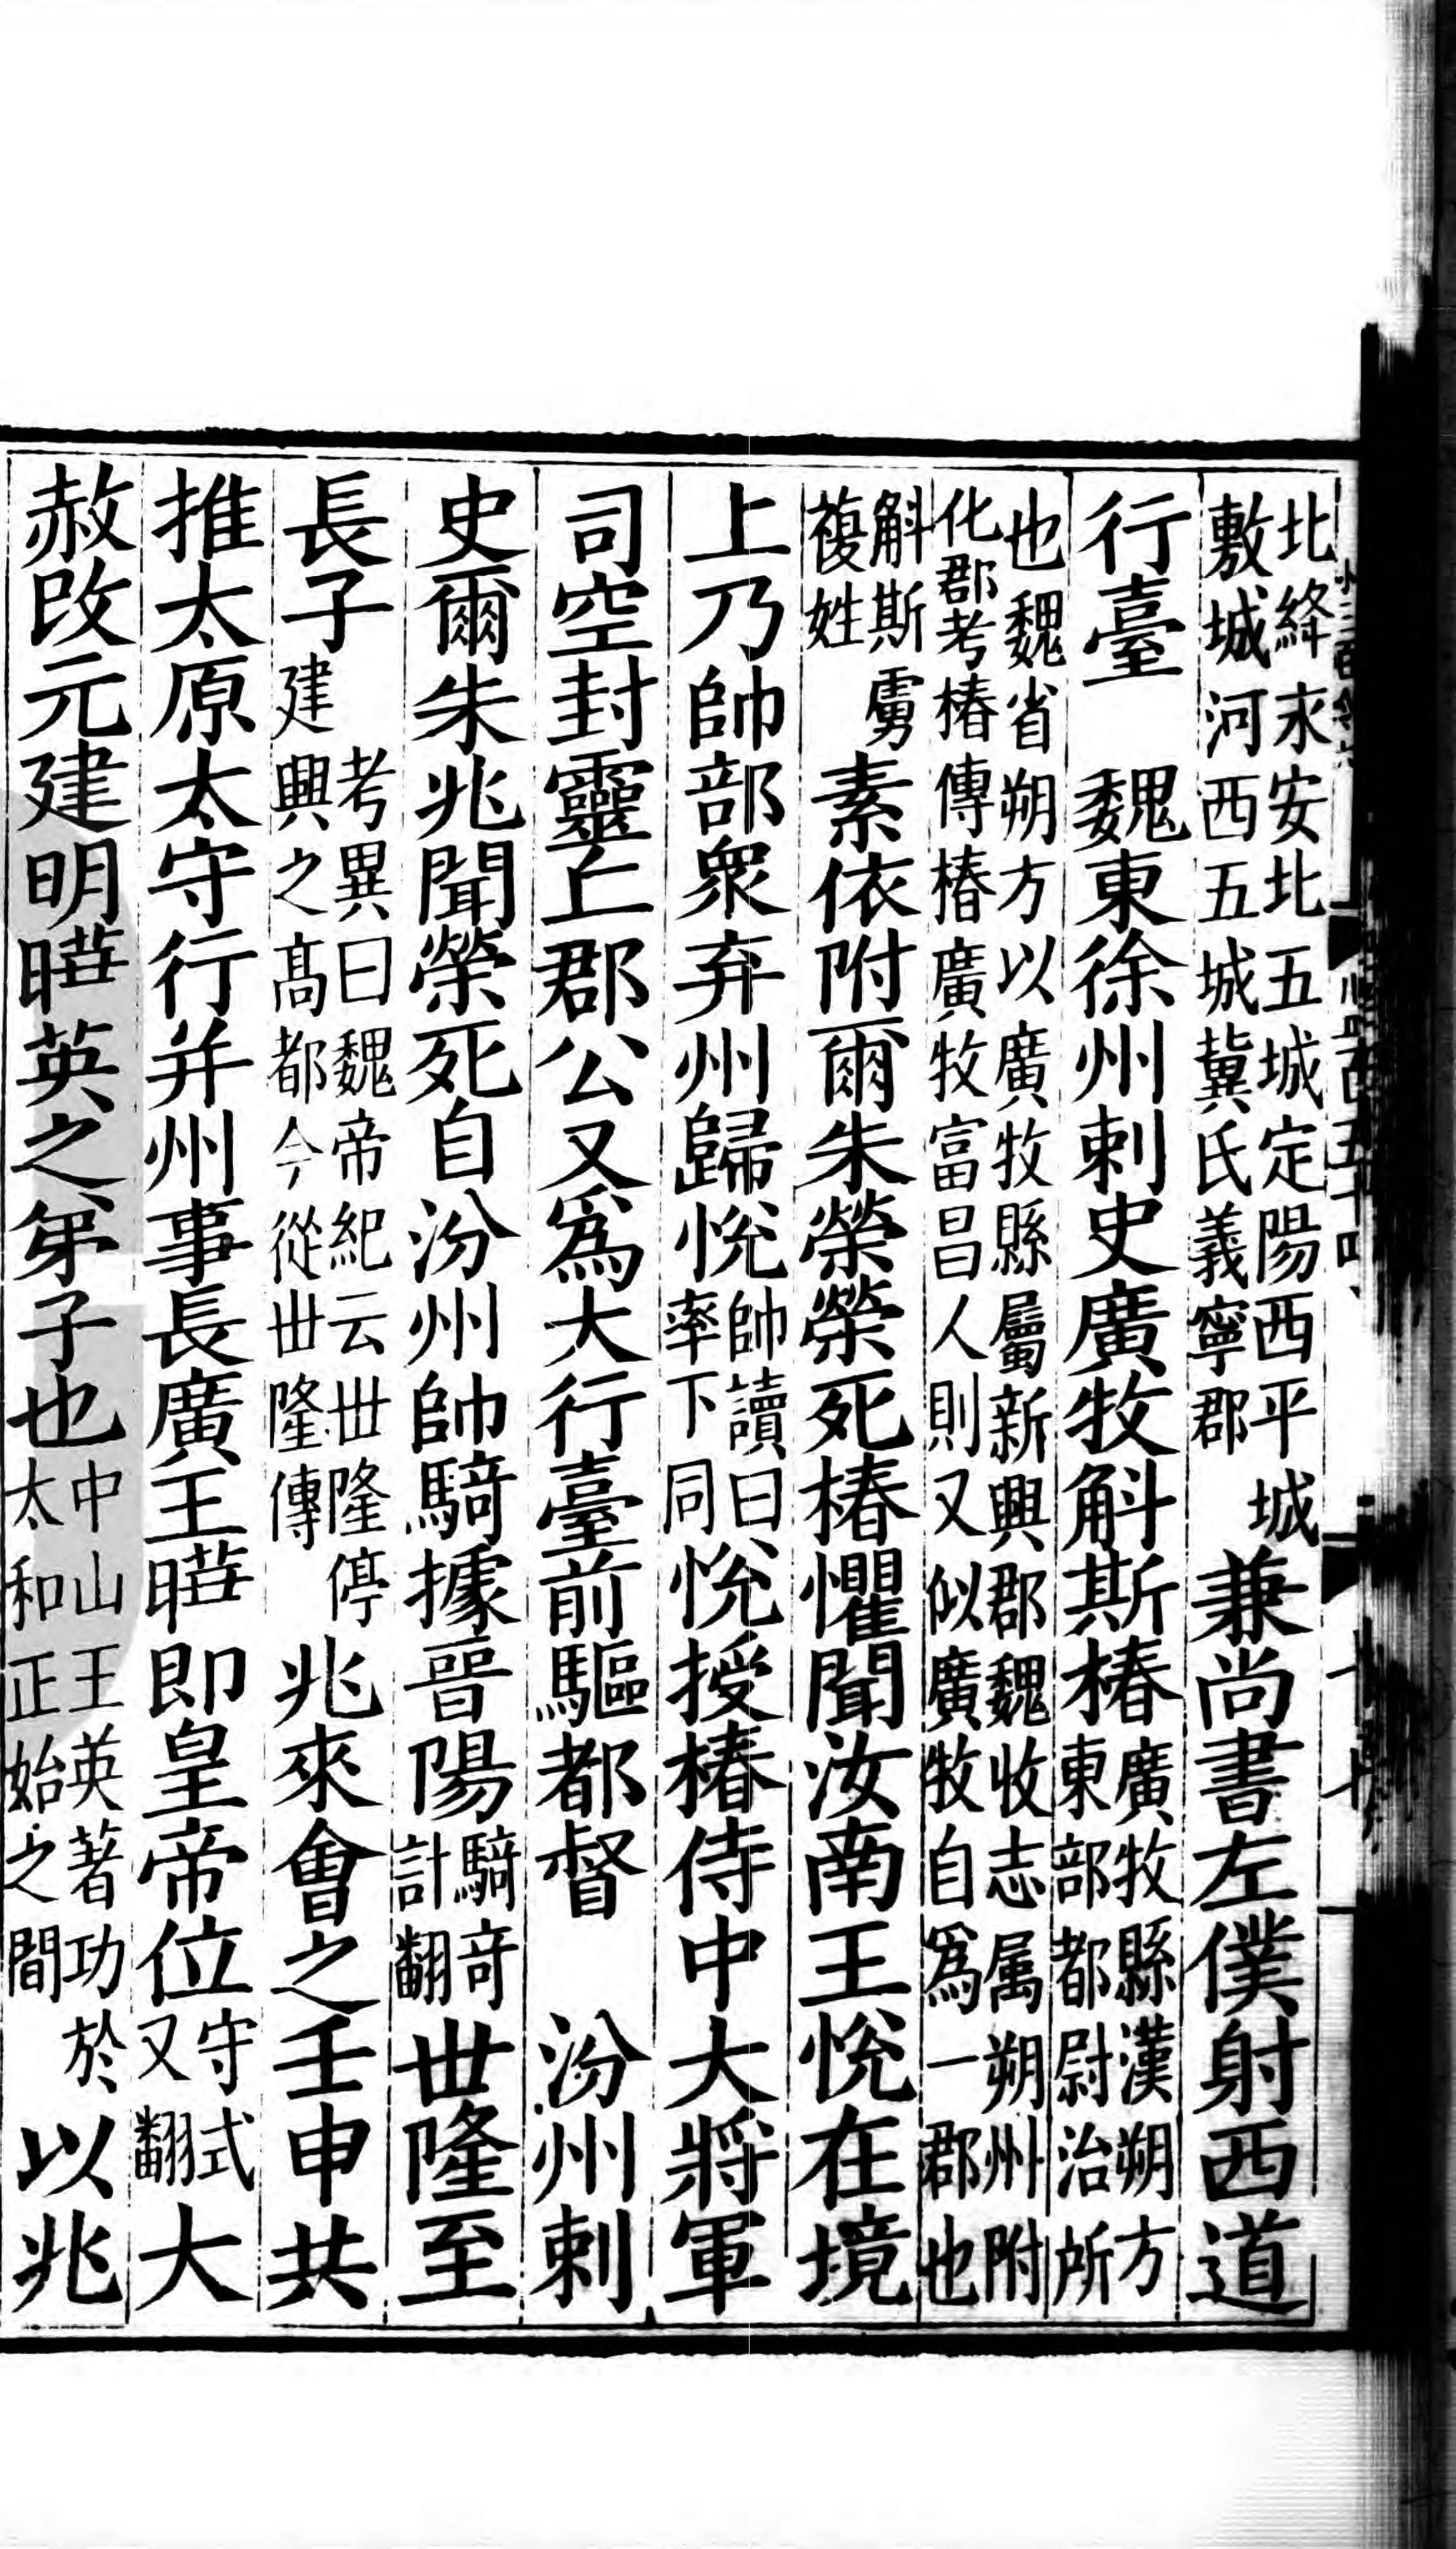 北絳永安北五城定陽西平城敷城河西五城冀氏義寧郡兼尚書左僕射西道
行臺　魏東徐州刺史廣牧斛斯椿廣牧縣漢朔方東部都尉治所
也魏省朔方以廣牧縣屬新興郡魏收志属朔州附化郡考椿傳椿廣牧富昌人則又似廣牧自爲一郡也
斛斯虜複姓素依附爾朱榮榮死椿懼聞汝南王悅在境
上乃帥部衆弃州歸悅帥讀曰率下同悅授椿侍中大將軍
司空封靈丘郡公又爲大行臺前驅都督　汾州刺
史爾朱兆聞榮死自汾州帥騎據晉陽騎奇計翻世隆至
長子考異曰魏帝紀云世隆停建興之髙都今從世隆傳兆來會之壬申共
推太原太守行并州事長廣王曄即皇帝位守式又翻大
赦改元建明曄英之弟子也中山王英著功於太和正始之間以兆